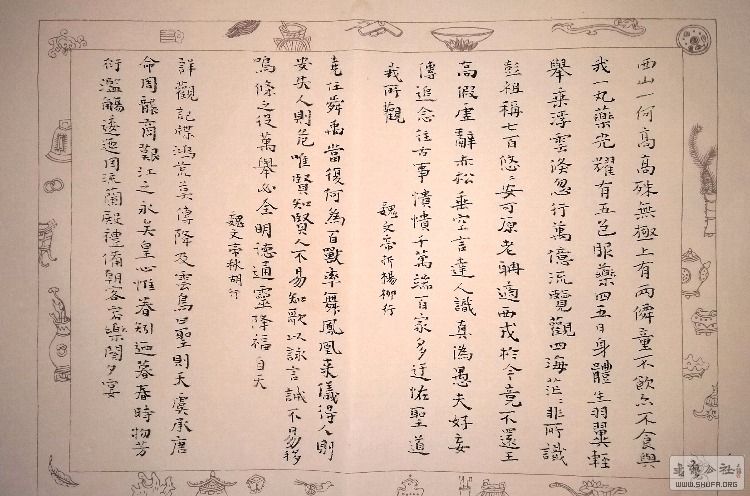 西山一何高高殊無極上有两僊童不飲亦不食與
我一丸藥光耀有五色服藥四五日身體生羽翼輕
舉乘浮雲倏忽行萬億流覽觀四海茫々非所識
彭祖稱七百悠々安可原老聃適西戎於今竟不還王
高假虛辭赤松垂空言達人識真偽愚夫好妄
傳追念往古事憒憒千萬端百家多迂怪聖道
我所觀
魏文帝折楊柳行
堯任舜禹當復何為百獸率舞鳳凰來儀得人則
安失人則危唯賢知賢人不易知歌以詠言誠不易移
鳴條之役萬舉必全明德通靈降福自天
魏文帝秋胡行
詳觀記牒鴻荒莫傳降及雲鳥曰聖則天虞承唐
命周襲商艱江之永矣皇心惟眷矧迺暮春時物芳
衍濫觴逶迤周流蘭殿禮備朝容樂闋夕宴
书艺公社
WWW.SHUFA.ORG